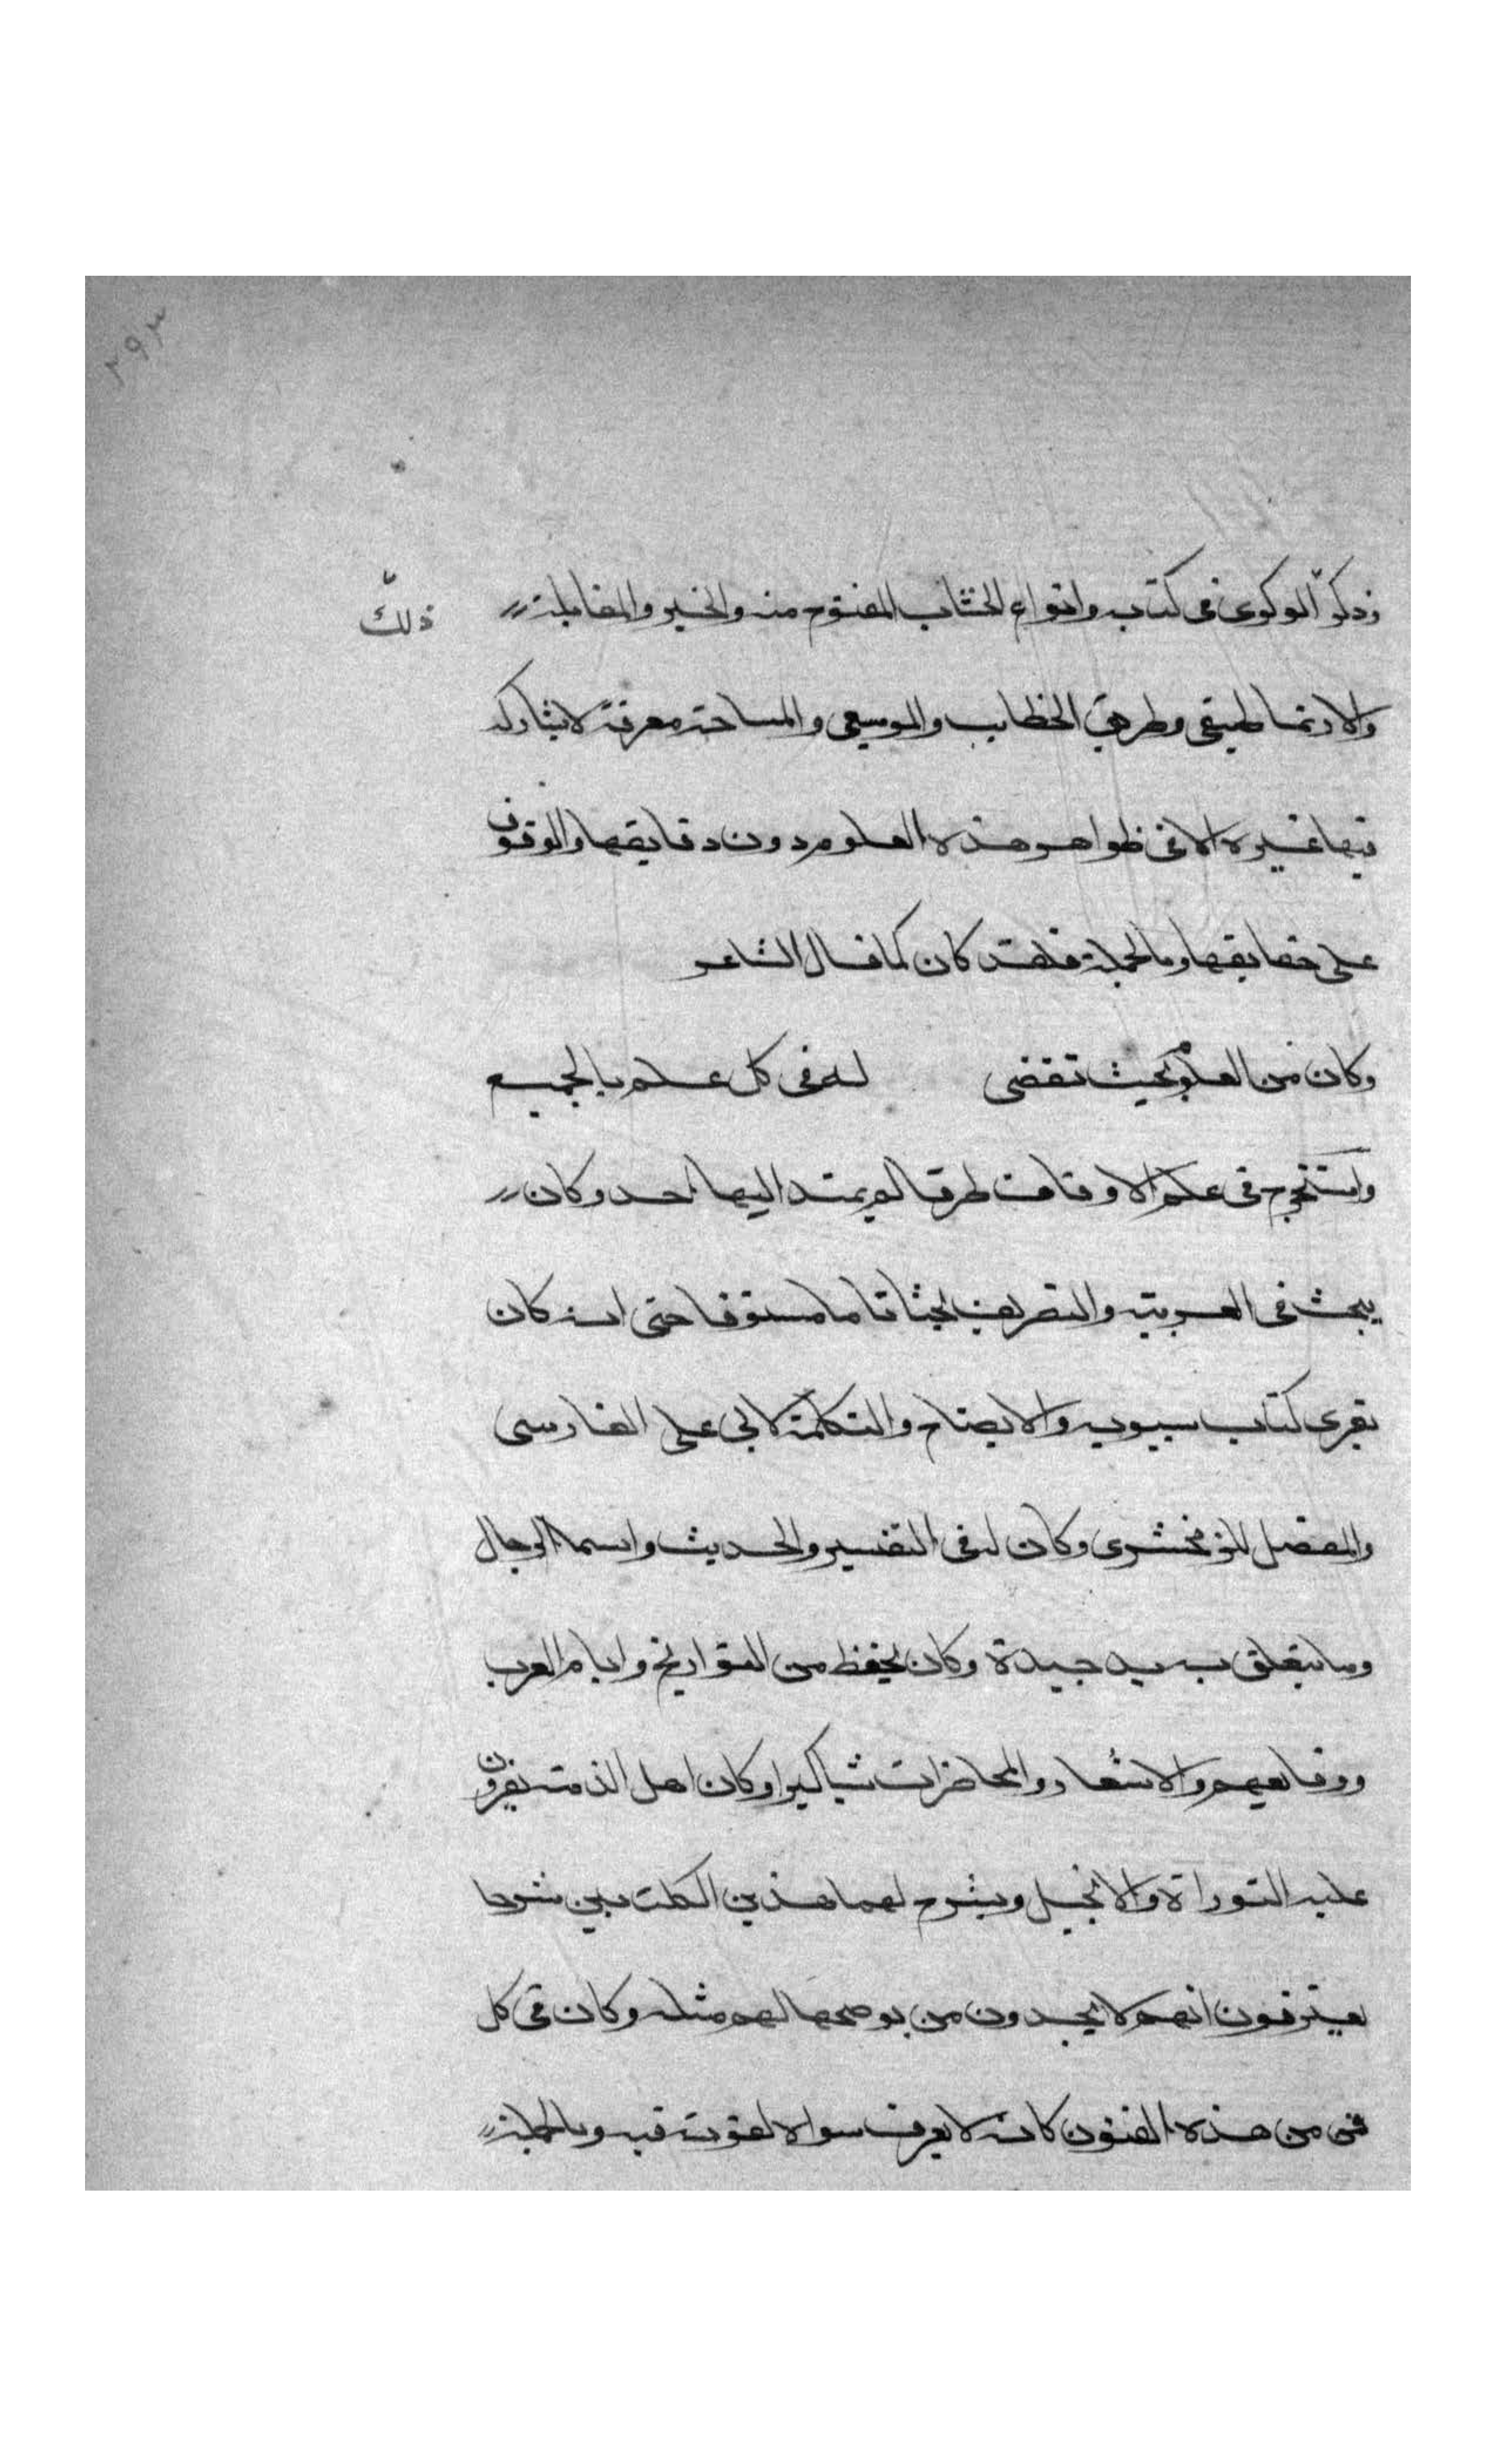 ٢٩٣
وذكر الوكوى فى كتب وانواع الحساب المفتوح منه والخبر والمقابلة
ذلك
والارتماطيقى وطريق الخطاين والموسيقى والمساحة معرفة لا يشاركه
فيها غيره الا فى ظواهر هذه العلوم دون دقايقها والوقوف
على حقايقها وبالجملة فلقد كان كما قال الشاعر
وكان من العلوم بحيث تقضى له فى كل علم بالجميع
واستخرج فى علم الاوفاق طرقا لم يهتد اليها احد وكان
يبحث فى العربية والتصريف بحثا تاما مستوفا حتى انه كان
يقرى كتاب سيبويه والايضاح والتكلمة لابى على الفارسى
والمفصل للزمخشرى وكان له فى التفسير والحديث واسما الرجال
وما يتعلق به يد جيدة وكان يحفظ من التواريخ وايام العرب
ووقايعهم والاشعار والمحاضرات شيا كثيرا وكان اهل الذمة يقرون
عليه التوراة والانجيل ويشرح لهما هذين الكتابين شرحا
يعترفون انهم لا يجدون من يوضحها لهم مثله وكان فى كل
فن من هذه الفنون كانه لا يعرف سواه لقوته فيه وبالجملة